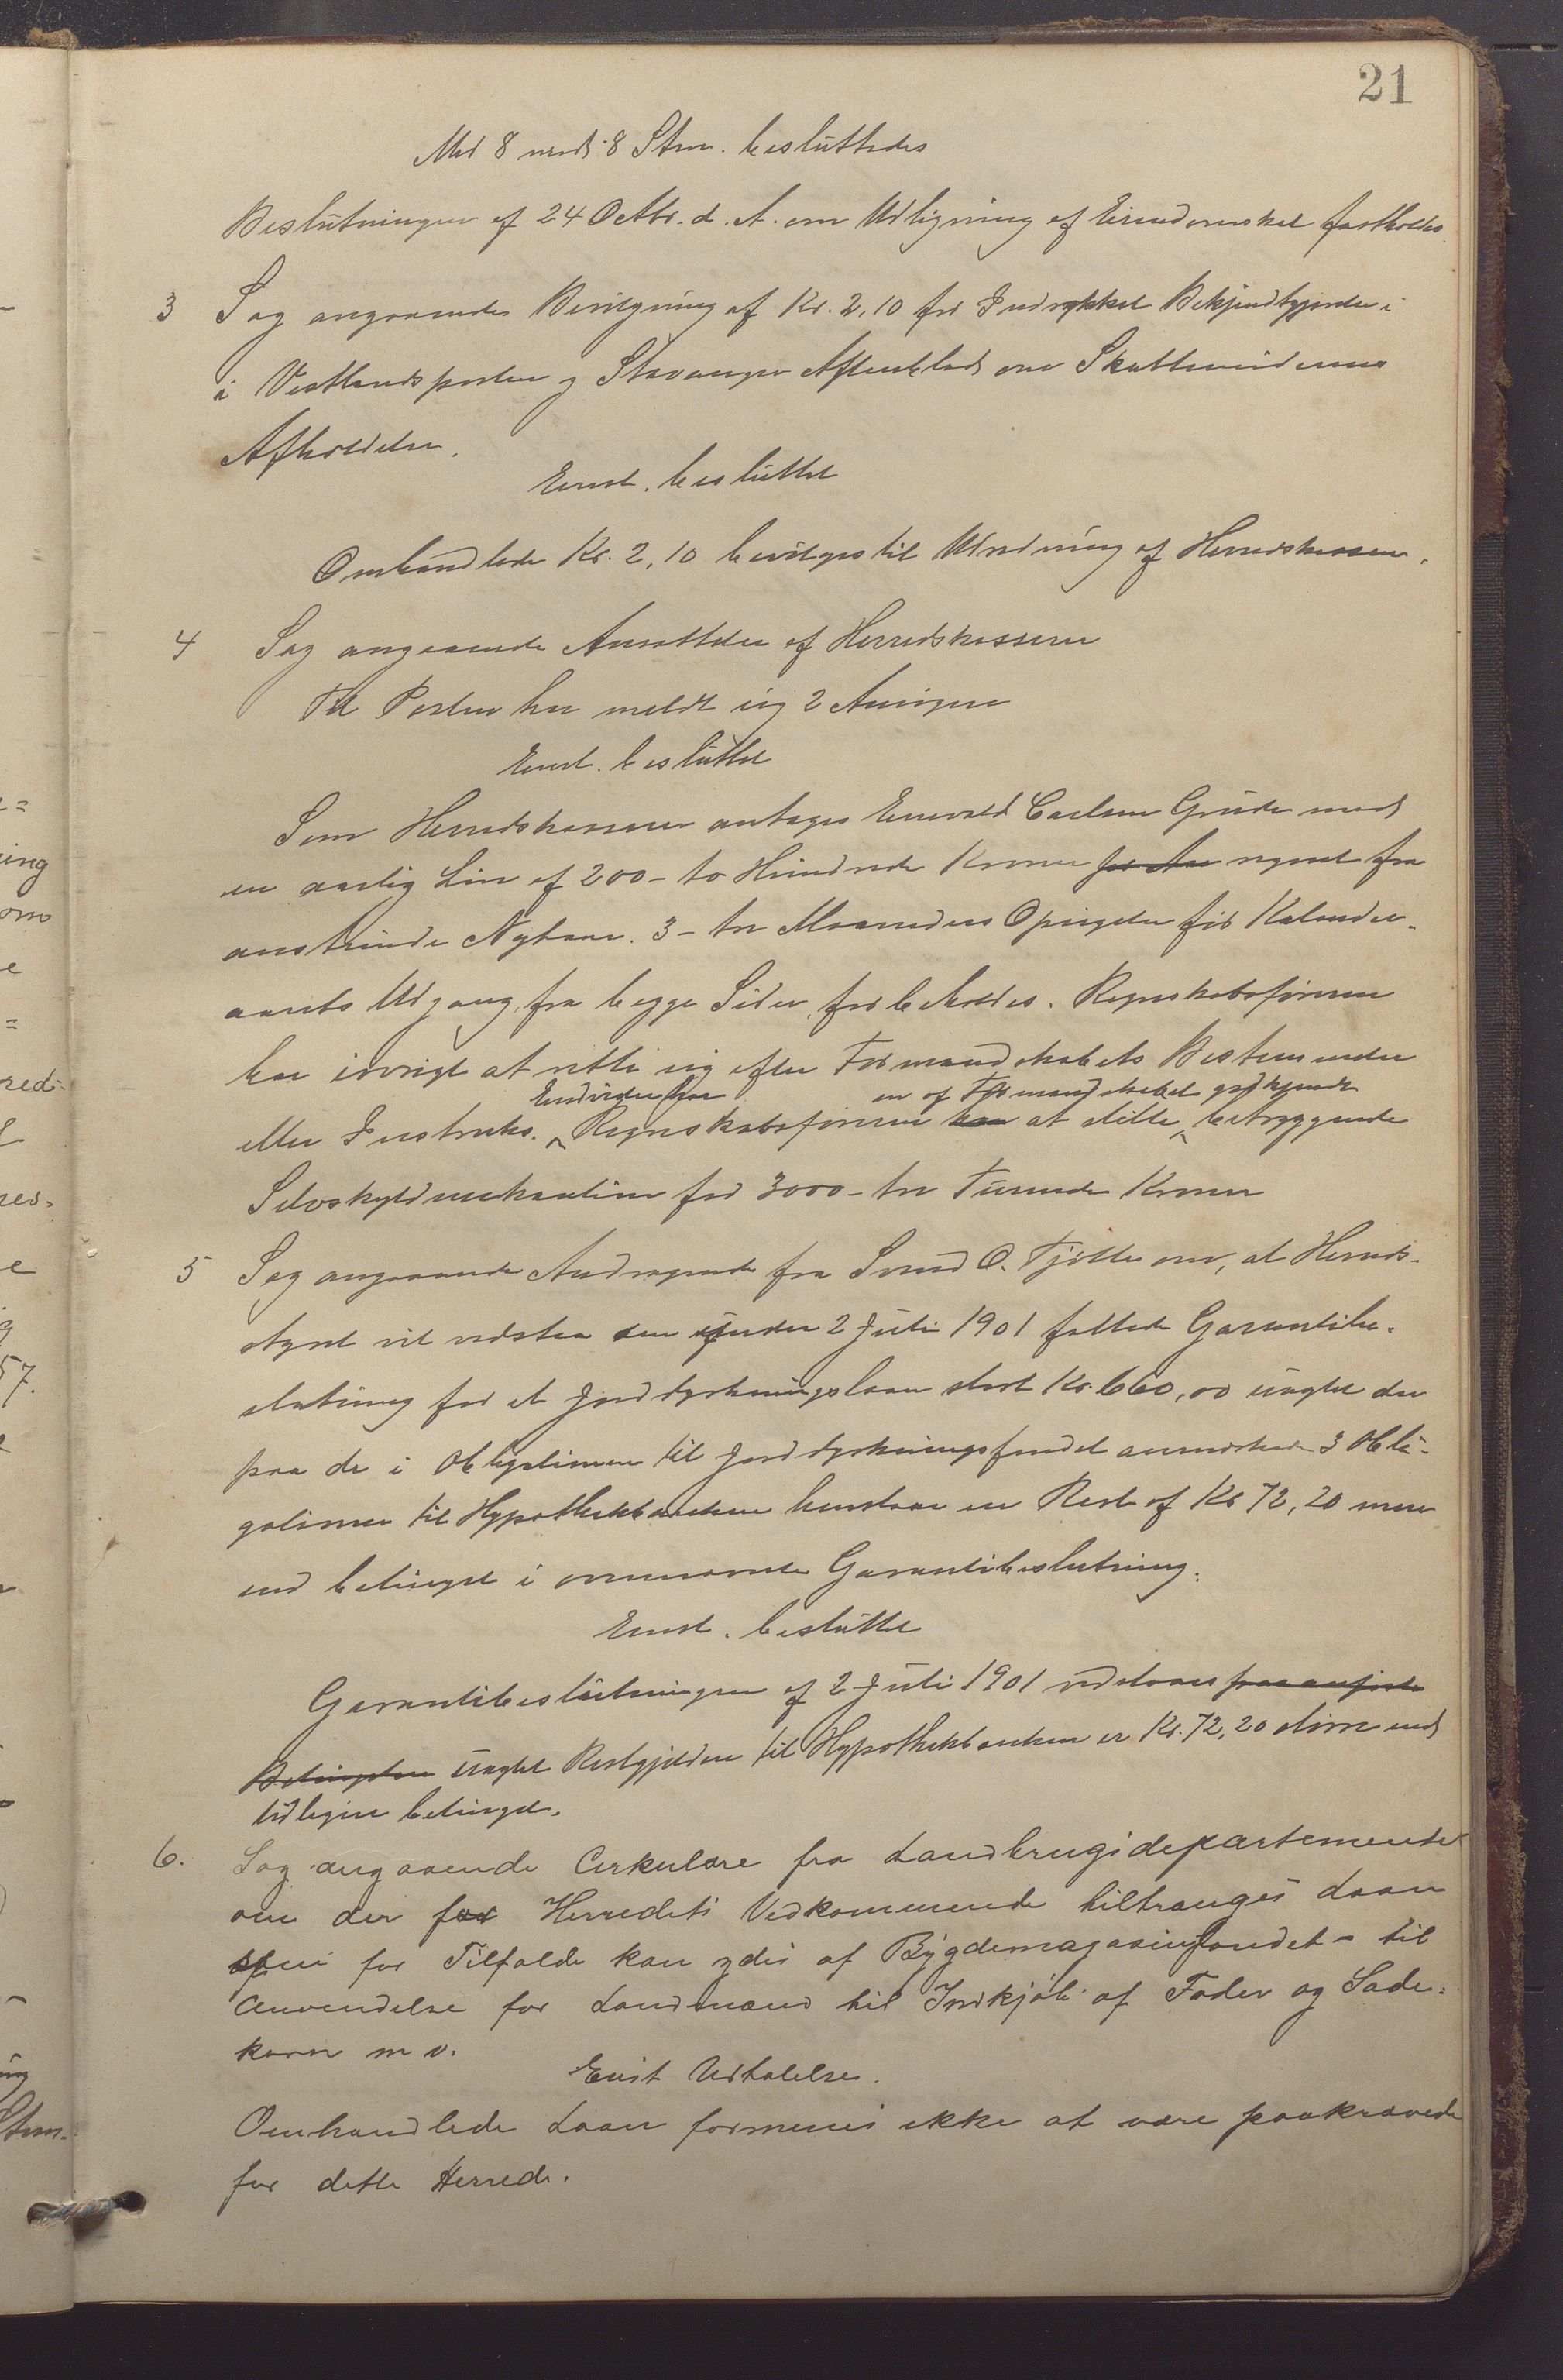 21
Med 8 mod 8 Stem. besluttedes
Beslutningen af 24 Octbr. d. A. om Udligning af Eiendomsskat fastholdes.
3 Sag angaaende Bevilgning af Kr. 2,10 for Indrykket Bekjendtgjørelse i
i Vestlandsposten og Stavanger Aftenblad om Skattemødernes
Afholdelse.
Enst. besluttet
Omhandlede Kr. 2,10 bevilges til Udredning af Herredskassen.
4 Sag angaaende Ansættelse af Herredskasserer
Til Posten har meldt sig 2 Ansøgere
Enst. besluttet
Som Herredskasserer antages Enevald Carlsen Grude mod
en aarlig Løn af 200 - to Hundrede Kroner for Aar regnet fra
anstundende Nytaar. 3 - tre Maaneders Opsigelse før Kalender-
aarets Udgang fra begge Sider forbeholdes. Regnskabsføreren
har iøvrigt at rette sig efter Formandskabets Bestemmelser
Endvidere har en af Formandskabet godkjendt
eller Instruks. Regnskabsføreren har at stille betryggende
Selvskyldnerkaution for 3000 - tre Tusinde Kroner
5 Sag angaaende Andragende fra Svend O. Tjøtta om, at Herreds-
styret vil vedstaa den under 2 Juli 1901 fattede Garantibe-
slutning for et Jorddyrkningslaan stort Kr. 660,00 uagtet der
paa de i Obligationen til Jorddyrkningsfondet anmærkede 3 Obli-
gationer til Hypothekbanken henstaar en Rest af Kr 72,20 mere
end betinget i omnævnte Garantibeslutning.
Enst. besluttet
Garantibeslutningen af 2 Juli 1901 vedstaaes paa anførte
Betingelser uagtet Restgjælden til Hypothekbanken er Kr. 72,20 større end
tidligere betinget.
6. Sag angaaende Cirkulære fra Landbrugsdepartementet
om der for Herredets Vedkommende tiltrænges Laan
som for Tilfælde kan ydes af Bygdemagasinfondet - til
Anvendelse for Landmænd til Indkjøb af Foder og Sæde-
korn m v.
Enst Udtalelse.
Omhandlede Laan formenes ikke at være paakrævede
for dette Herred.